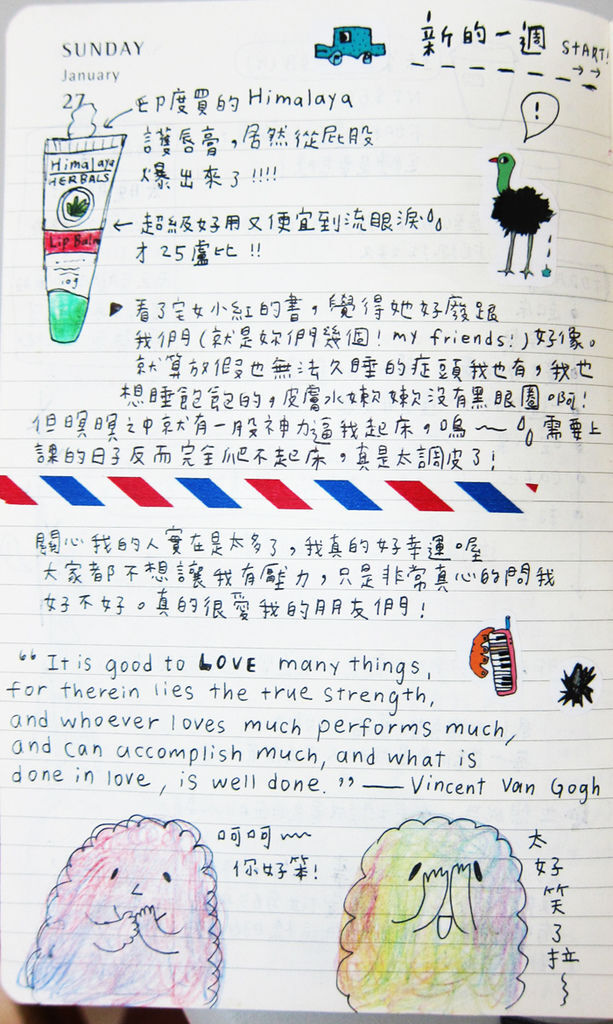 SUNDAY
January
27
新的一週 START!
!
印度買的Himalaya
護唇膏，居然從屁股
爆出來了!!!!
Himalaya
HERBALS
Lip Balm
10g
超級好用又便宜到流眼淚
才25盧比!!
看了宅女小紅的書，覺得她好廢跟
我們(就是妳們幾個! my friends!)好像。
就算放假也無法久睡的症頭我也有，我也
想睡飽飽的，皮膚水嫩嫩沒有黑眼圈啊!
但暝暝之中就有一股神力逼我起床，嗚～ 需要上
課的日子反而完全爬不起床，真是太調皮了!
關心我的人實在是太多了，我真的好幸運喔
大家都不想讓我有壓力，只是非常真心的問我
好不好。真的很愛我的朋友們!
“It is good to LOVE many things,
for therein lies the true strength,
and whoever loves much performs much,
and can accomplish much, and what is
done in love, is well done.” — Vincent Van Gogh
呵呵～
你好笨!
太好笑了拉～